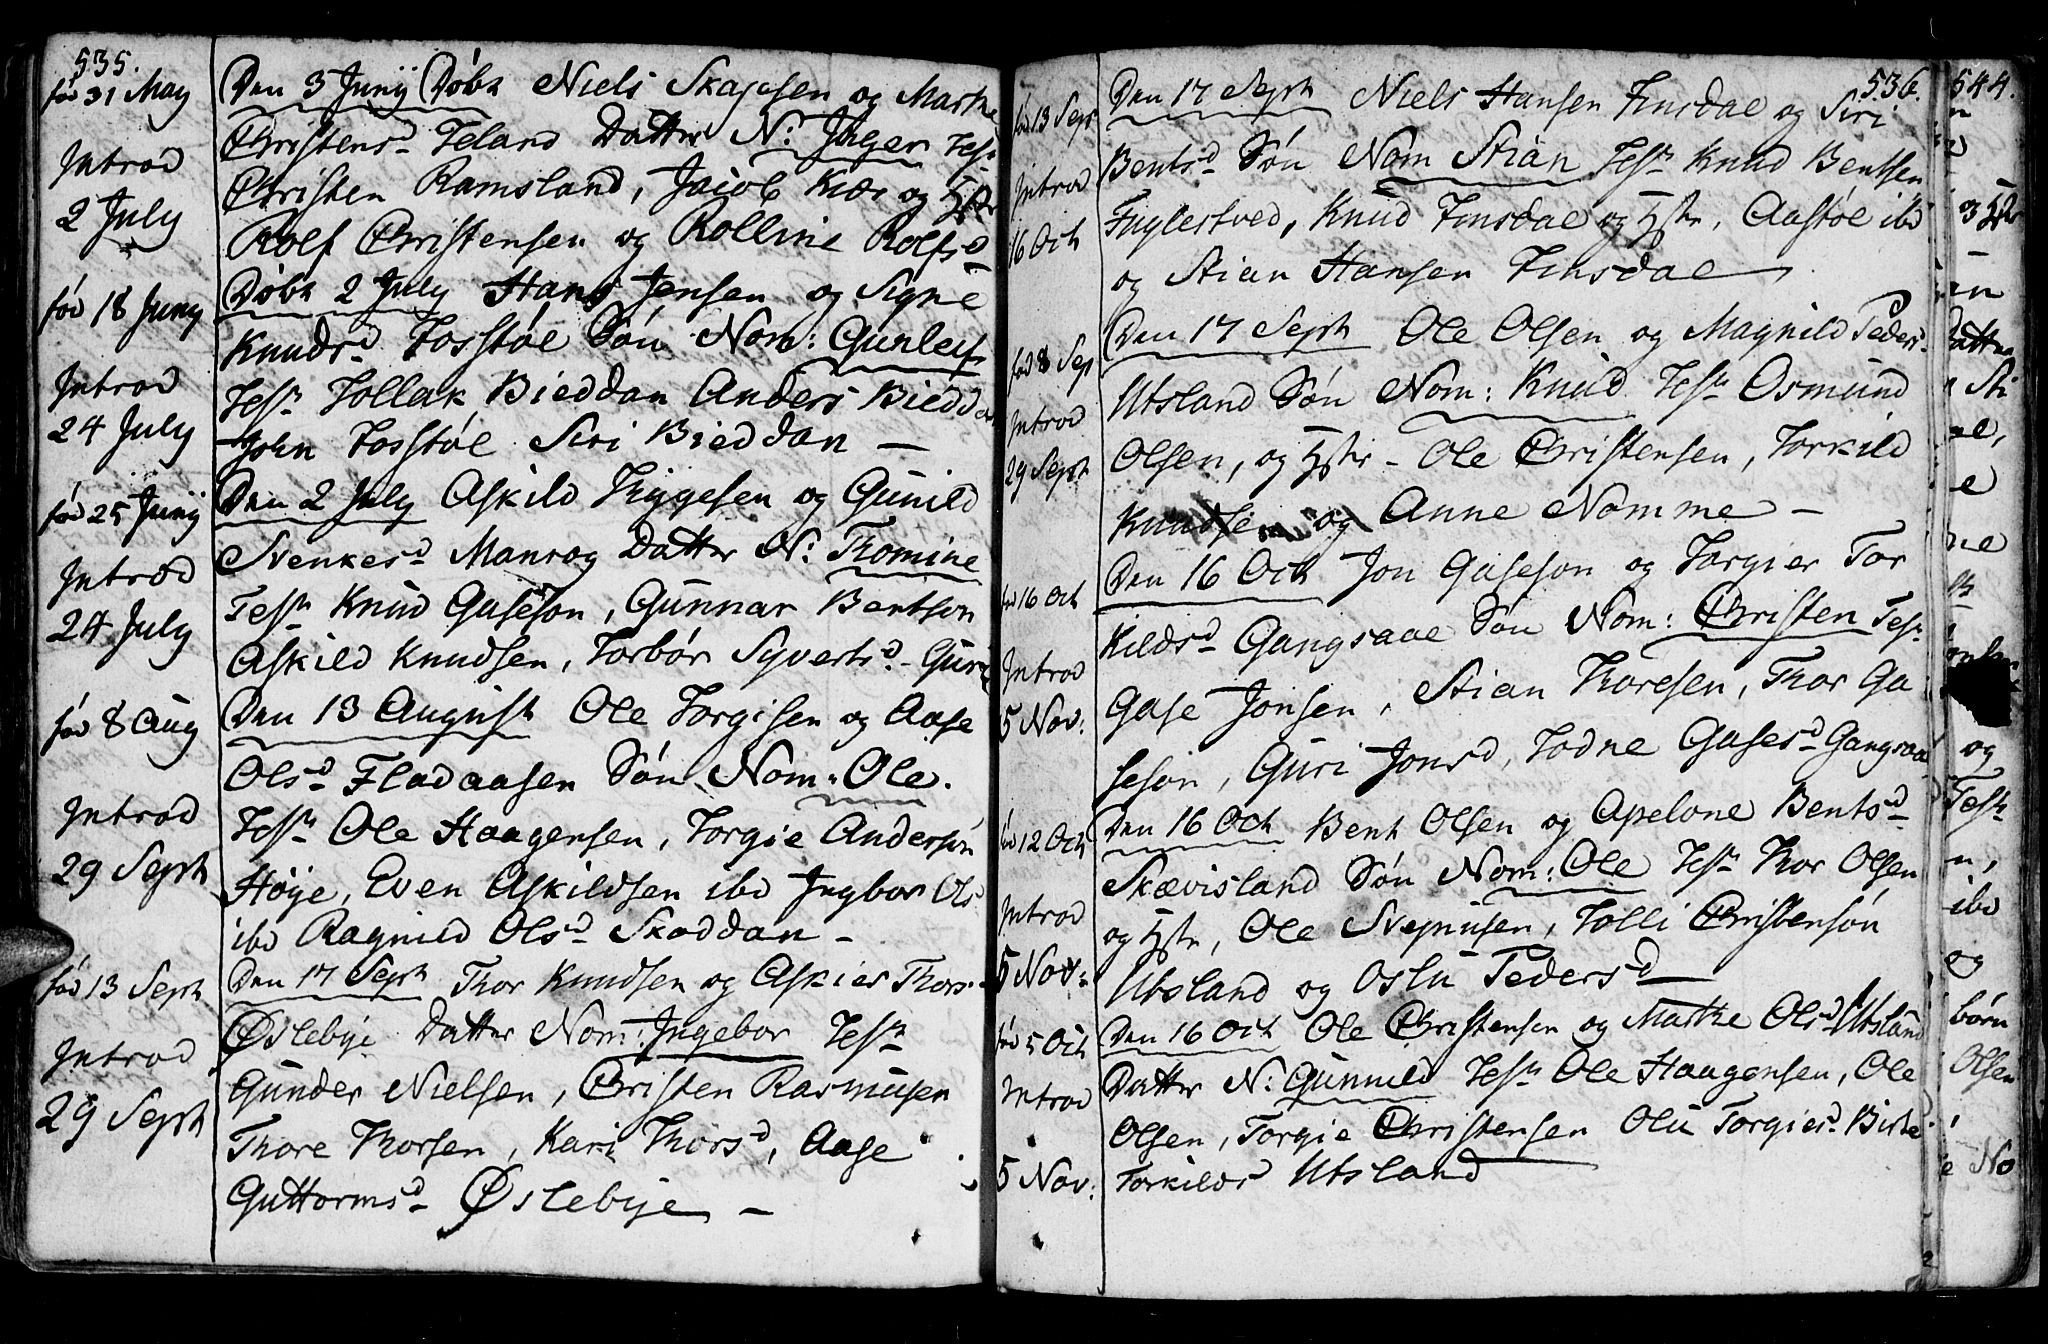 535.
fød 31 May
Introd
2 July
fød 18 Juny
Introd
24 July
fød 25 Junij
Introd
24 July
fød 8 Aug
Introd
29 Sept
fød 13 Sept
Introd
29 Sept
Den 3 Junij Døbt Niels Skajesen og Marthe
Christensd Teland Datter N: Inger Test
Christen Ramsland, Jacob Kiær og Hstr
Rolf Christensen og Rolline Rolfsd
Døbt 2 July Hans Jensen og Signe
Knudsd Fosstøl Søn Nom: Gunleif
Test Tollak Bieddan Anders Biedda
John Fosstøl Siri Bieddan —
Den 2 July Askild Tygesen og Gunild
Svenkesd Manrog Datter N: Thomine
Test Knud Gaseson, Gunnar Bentson
Askild Knudsen, Torbør Syvertsd - Guri
Den 13 August Ole Torgisen og Aase
Olsd Fladaasen Søn Nom: Ole.
Test Ole Haagensen, Torgie Anderson
Høye, Even Askildsen ibd Ingbor Ols
ibd Ragnild Olsd Skoddan —
Den 17 Sept Thor Knudsen og Askier Thors
Øslebye Datter Nom: Ingebor Test
Gunder Nielsen, Christen Rasmusen
Thore Thorsen, Kari Thorsd, Aase
Guttormsd Øslebye —
536.
fød 13 Sept
Introd
16 Oct
fød 8 Sep
Introd
29 Sept
fød 16 Oct
Introd
5 Nov:
fød 12 Oct
Introd
5 Nov:
fød 5 Oct
Introd
5 Nov:
Den 17 Sept Niels Hansen Finsdal og Siri
Bentsd Søn Nom Stian Test Knud Bentsen
Fuglestved, Knud Finsdal og Hstr, Aastøl ibd
og Stian Hansen Finsdal
Den 17 Sept Ole Olsen og Magnild Peders
Utsland Søn Nom: Knud Test Osmund
Olsen, og Hstr - Ole Christensen, Torkild
Knudsen og Anne Nomme —
Den 16 Oct Jon Gaseson og Torgier Tor
kildsd Gangsaae Søn Nom: Christen Test
Gase Jonsen, Stian Thoresen, Thor Ga
seson, Guri Jonsd, Todne Gasesd Gangsaa
Den 16 Oct Bent Olsen og Apelone Bentsd
Skævisland Søn Nom: Ole Test Thor Olsen
og Hstr, Ole Svenusen, Tolli Christensøn
Utsland og Oslu Pedersd
Den 16 Oct Ole Christensen og Marthe Olsd Utsland
Datter N: Gunnild Test Ole Haagensen, Ole
Olsen, Torgie Christensen Olu Torgiersd Birte
Torkilds Utsland
544.
og
Test
ibd
og
børn
Olsen